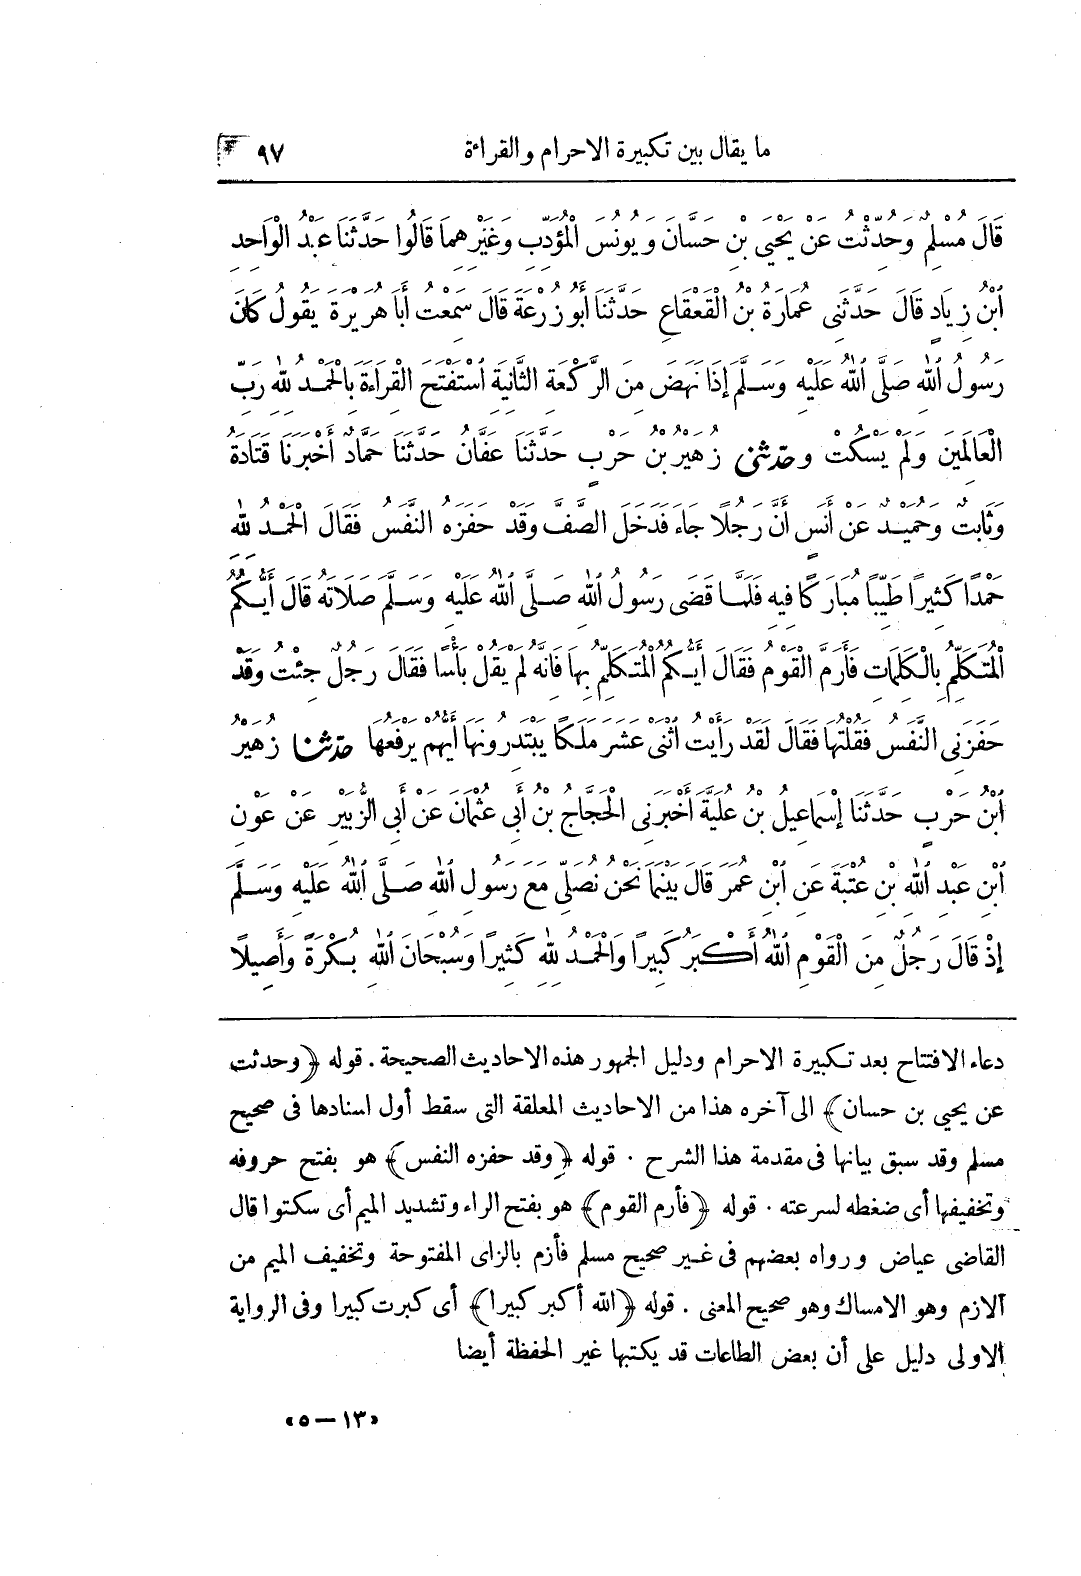 ما يقال بين تكبيرة الاحرام والقراءة ٩٧
قَالَ مُسْلِمٌ وَحُدِّثْتُ عَنْ يَحْيَى بْنِ حَسَّانَ وَيُونُسَ الْمُؤَدِّبِ وَغَيْرِهِمَا قَالُوا حَدَّثَنَا عَبْدُ الْوَاحِدِ
ٱبْنُ زِيَادٍ قَالَ حَدَّثَنِى عُمَارَةُ بْنُ الْقَعْقَاعِ حَدَّثَنَا أَبُو زُرْعَةَ قَالَ سَمِعْتُ أَبَا هُرَيْرَةَ يَقُولُ كَانَ
رَسُولُ ٱللهِ صَلَّى ٱللهُ عَلَيْهِ وَسَلَّمَ إِذَا نَهَضَ مِنَ الرَّكْعَةِ الثَّانِيَةِ ٱسْتَفْتَحَ الْقِرَاءَةَ بِالْحَمْدُ لِلّٰهِ رَبِّ
الْعَالَمِينَ وَلَمْ يَسْكُتْ وحَدَّثَنِى زُهَيْرُ بْنُ حَرْبٍ حَدَّثَنَا عَفَّانُ حَدَّثَنَا حَمَّادٌ أَخْبَرَنَا قَتَادَةُ
وَثَابِتٌ وَحُمَيْدٌ عَنْ أَنَسٍ أَنَّ رَجُلًا جَاءَ فَدَخَلَ الصَّفَّ وَقَدْ حَفَزَهُ النَّفَسُ فَقَالَ الْحَمْدُ لِلّٰهِ
حَمْدًا كَثِيرًا طَيِّبًا مُبَارَكًا فِيهِ فَلَمَّا قَضَى رَسُولُ ٱللهِ صَلَّى ٱللهُ عَلَيْهِ وَسَلَّمَ صَلَاتَهُ قَالَ أَيُّكُمُ
الْمُتَكَلِّمُ بِالْكَلِمَاتِ فَأَرَمَّ الْقَوْمُ فَقَالَ أَيُّكُمُ الْمُتَكَلِّمُ بِهَا فَانَّهُ لَمْ يَقُلْ بَأْسًا فَقَالَ رَجُلٌ جِئْتُ وَقَدْ
حَفَزَنِى النَّفَسُ فَقُلْتُهَا فَقَالَ لَقَدْ رَأَيْتُ ٱثْنَى عَشَرَ مَلَكًا يَبْتَدِرُونَهَا أَيُّهُمْ يَرْفَعُهَا حَدَّثَنَا زُهَيْرُ
ٱبْنُ حَرْبٍ حَدَّثَنَا إِسْمَاعِيلُ بْنُ عُلَيَّةَ أَخْبَرَنِى الْحَجَّاجُ بْنُ أَبِى عُثْمَانَ عَنْ أَبِى الزُّبَيْرِ عَنْ عَوْنِ
ٱبْنِ عَبْدِ ٱللهِ بْنِ عُتْبَةَ عَنِ ٱبْنِ عُمَرَ قَالَ بَيْنَمَا نَحْنُ نُصَلِّى مَعَ رَسُولِ ٱللهِ صَلَّى ٱللهُ عَلَيْهِ وَسَلَّمَ
إِذْ قَالَ رَجُلٌ مِنَ الْقَوْمِ ٱللهُ أَكْبَرُ كَبِيرًا وَالْحَمْدُ لِلّٰهِ كَثِيرًا وَسُبْحَانَ ٱللهِ بُكْرَةً وَأَصِيلًا
دعاء الافتتاح بعد تكبيرة الاحرام ودليل الجمهور هذه الاحاديث الصحيحة. قوله ﴿وحدثت
عن يحيى بن حسان﴾ الى آخره هذا من الاحاديث المعلقة التى سقط أول اسنادها فى صحيح
مسلم وقد سبق بيانها فى مقدمة هذا الشرح. قوله ﴿وقد حفزه النفس﴾ هو بفتح حروفه
وتخفيفها أى ضغطه لسرعته. قوله ﴿فأرم القوم﴾ هو بفتح الراء وتشديد الميم أى سكتوا قال
القاضى عياض ورواه بعضهم فى غير صحيح مسلم فأزم بالزاى المفتوحة وتخفيف الميم من
الازم وهو الامساك وهو صحيح المعنى. قوله ﴿الله أكبر كبيرا﴾ أى كبرت كبيرا وفى الرواية
الاولى دليل على أن بعض الطاعات قد يكتبها غير الحفظة أيضا
«١٣ — ٥»